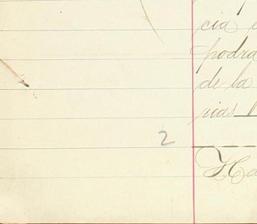 cia
podra
de la
rias
2